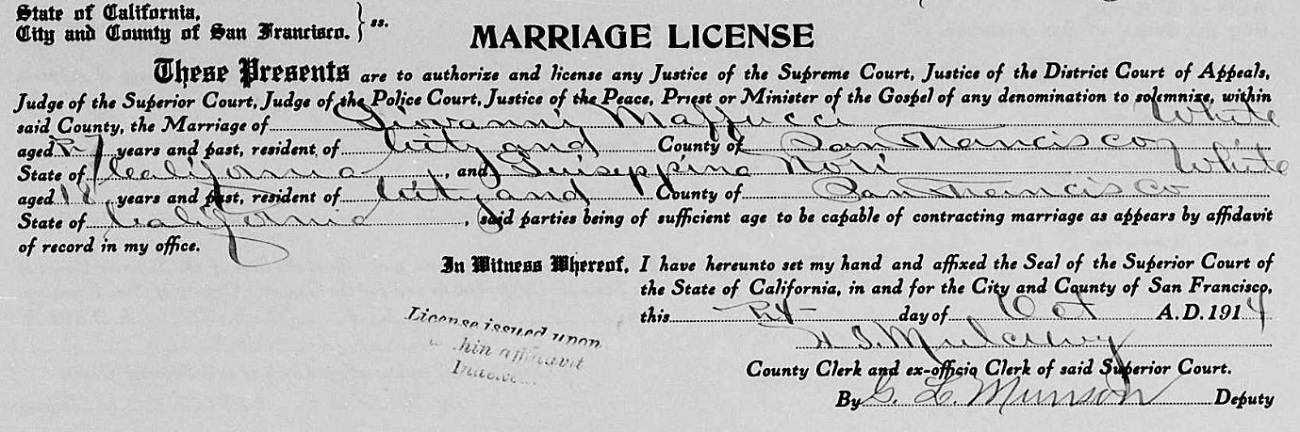 State of California,
City and County of San Francisco. } ss.
MARRIAGE LICENSE
These Presents are to authorize and license any Justice of the Supreme Court, Justice of the District Court of Appeals,
Judge of the Superior Court, Judge of the Police Court, Justice of the Peace, Priest or Minister of the Gospel of any denomination to solemnize, within
said County, the Marriage of Giovanni Maffucci White
aged years and past, resident of City and County of San Francisco
State of California, and Guiseppina Nori White
aged 18 years and past, resident of City and County of San Francisco
State of California, said parties being of sufficient age to be capable of contracting marriage as appears by affidavit
of record in my office.
In Witness Whereof, I have hereunto set my hand and affixed the Seal of the Superior Court of
the State of California, in and for the City and County of San Francisco,
this day of Oct A. D. 1914
License issued upon
within affidavit
H. I. Mulcrevy
County Clerk and ex-officio Clerk of said Superior Court.
By G. L. Munson Deputy